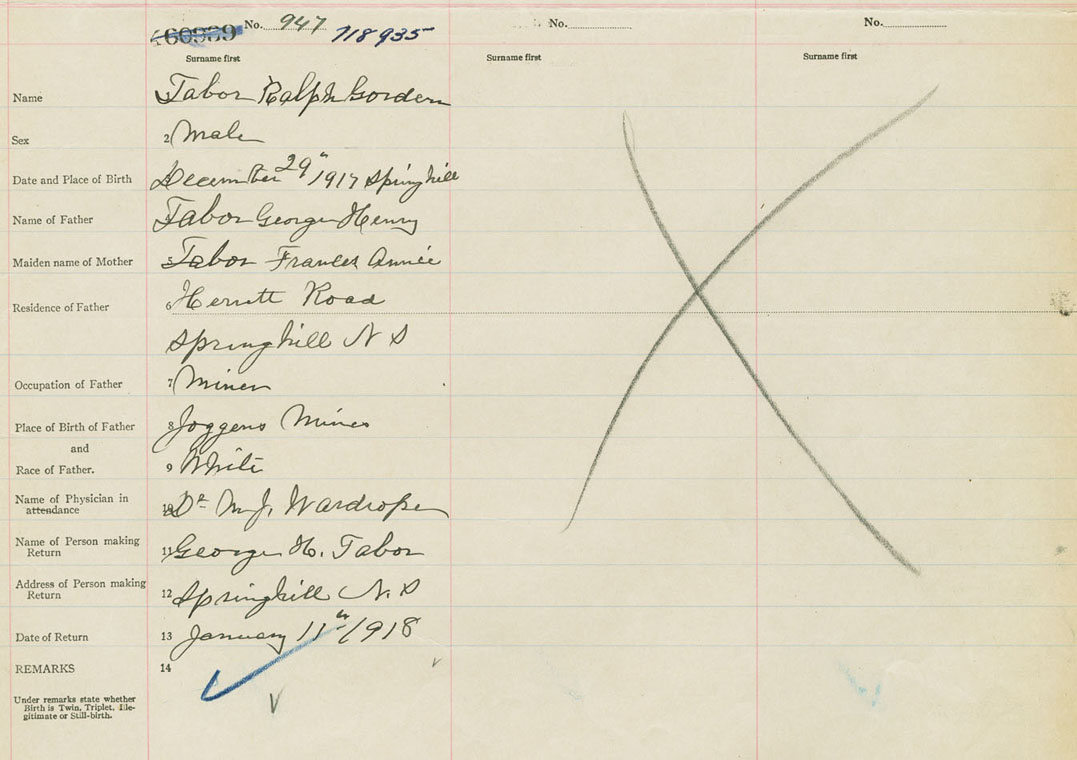 No. 947
460939 718935
No.
No.
Surname first
Surname first
Surname first
Name Tabor Ralph Gordern
Sex 2 Male
Date and Place of Birth December 29" 1917 Springhill
Name of Father Tabor George Henry
Maiden name of Mother 5 Tabor Frances Annie
Residence of Father 6 Herrett Road
Springhill N S
Occupation of Father 7 Miner
Place of Birth of Father 8 Joggens Mines
and
Race of Father. 9 White
Name of Physician in
attendance 10 Dr M J. Wardrope
Name of Person making
Return 11 George H. Tabor
Address of Person making
Return 12 Springhill N. S
Date of Return 13 January 11th/1918
REMARKS 14
Under remarks state whether
Birth is Twin, Triplet, Ille-
gitimate or Still-birth.